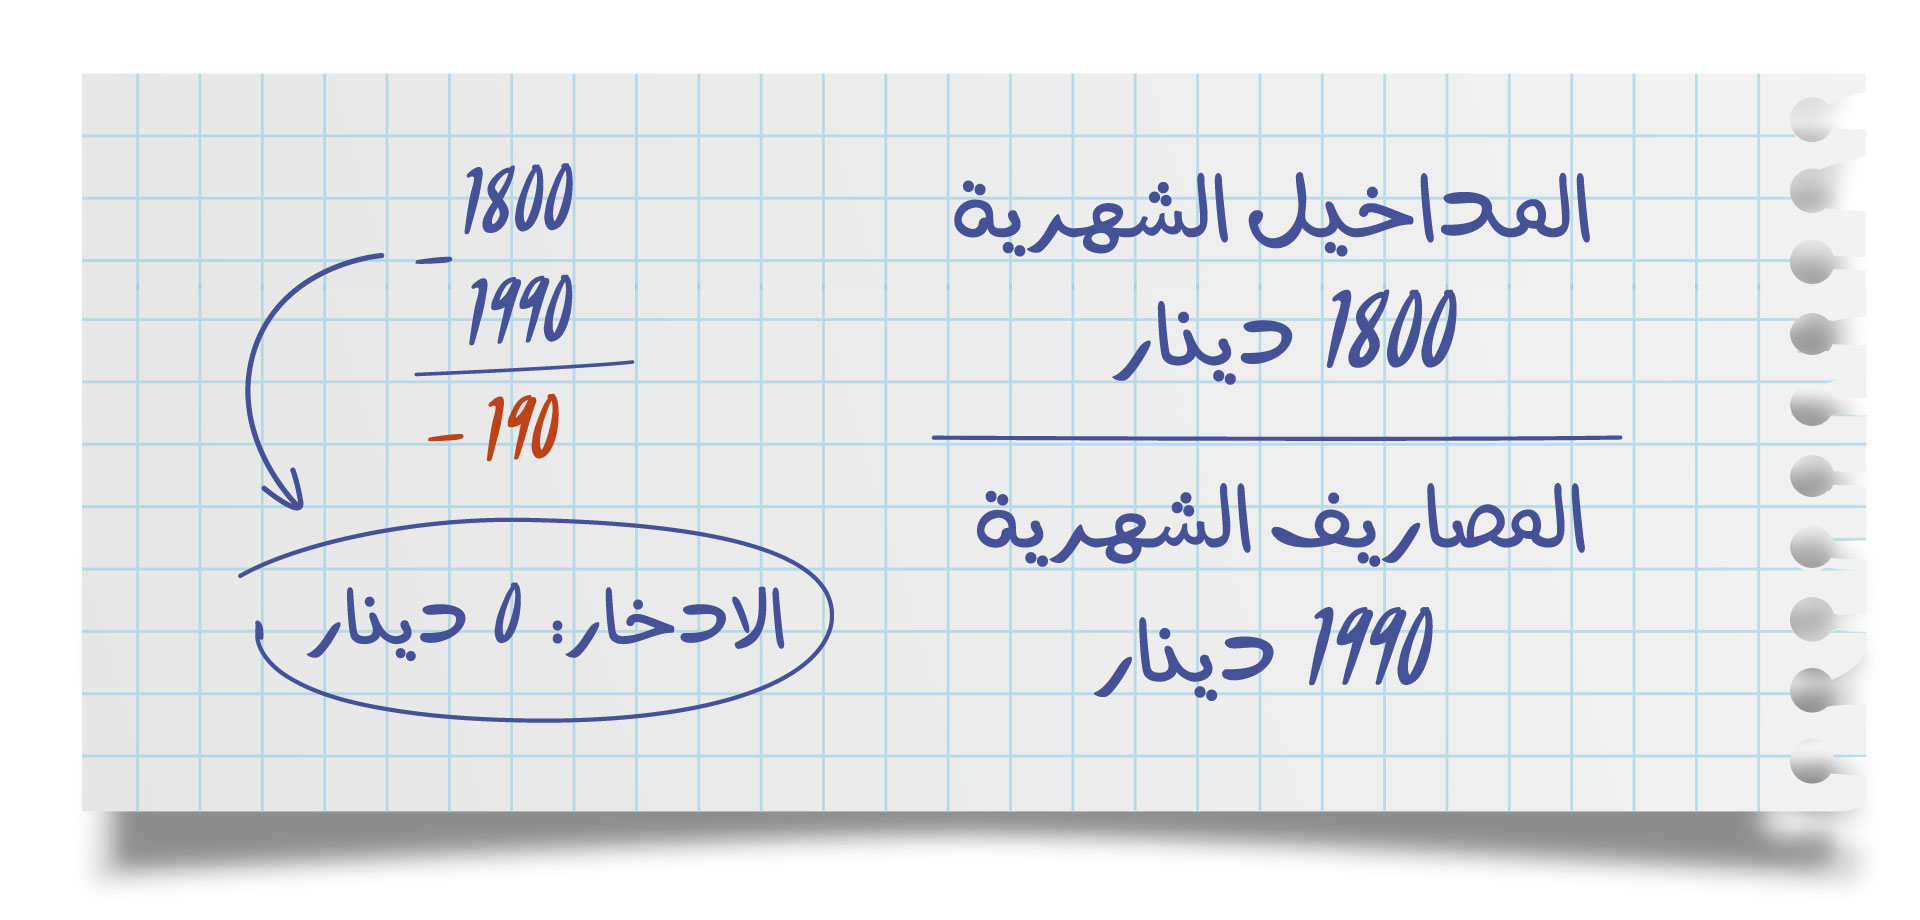 المداخيل الشهرية
1800 دينار
المصاريف الشهرية
1990 دينار
1800
–
1990
– 190
الادخار: 0 دينار